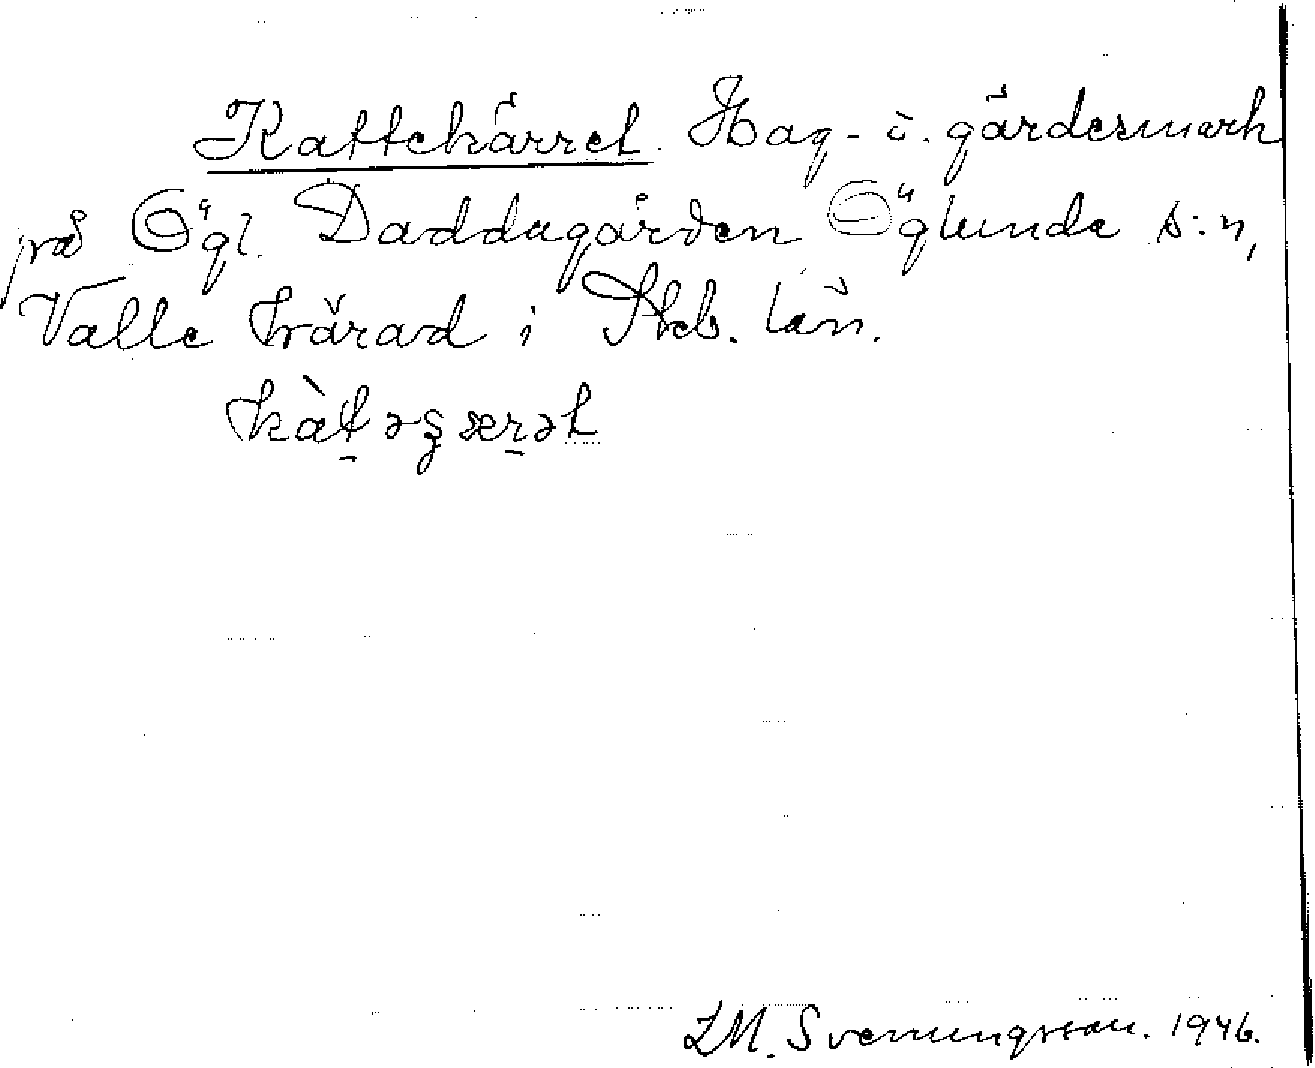 Kattekärret. Hag- o. gärdesmark
på Ögl. Daddagården Öglunda s:n,
Valle härad i Skb. län.
kàt̠əʂær̠ət
LM. Svenungsson. 1946.